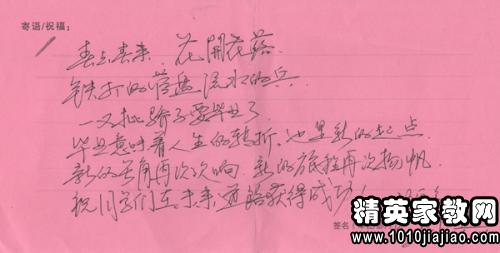 寄语/祝福：
春去春来，花开花落，
铁打的营盘流水的兵
一又批骄子要毕业了
毕业意味着人生的转折，也是新的起点，
新的号角再次吹响，新的旅程再次扬帆，
祝同学们在未来道路获得成功
签名：
精英家教网
www.1010jiajiao.com